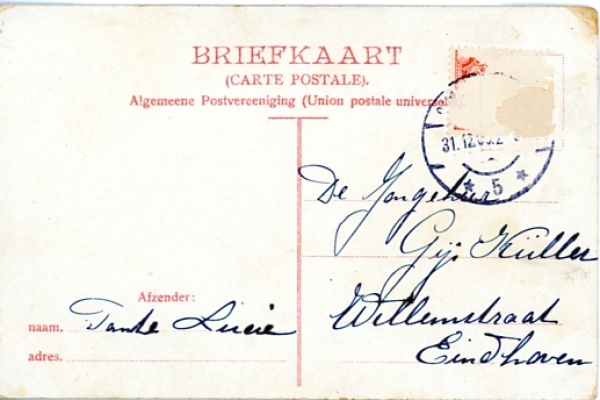 BRIEFKAART
(CARTE POSTALE).
Algemeene Postvereeniging (Union postale universelle).
31.12
5
De Jongeheer
Gijs Küller
Willemstraat
Eindhoven
Afzender:
naam. Tante Lucie
adres.